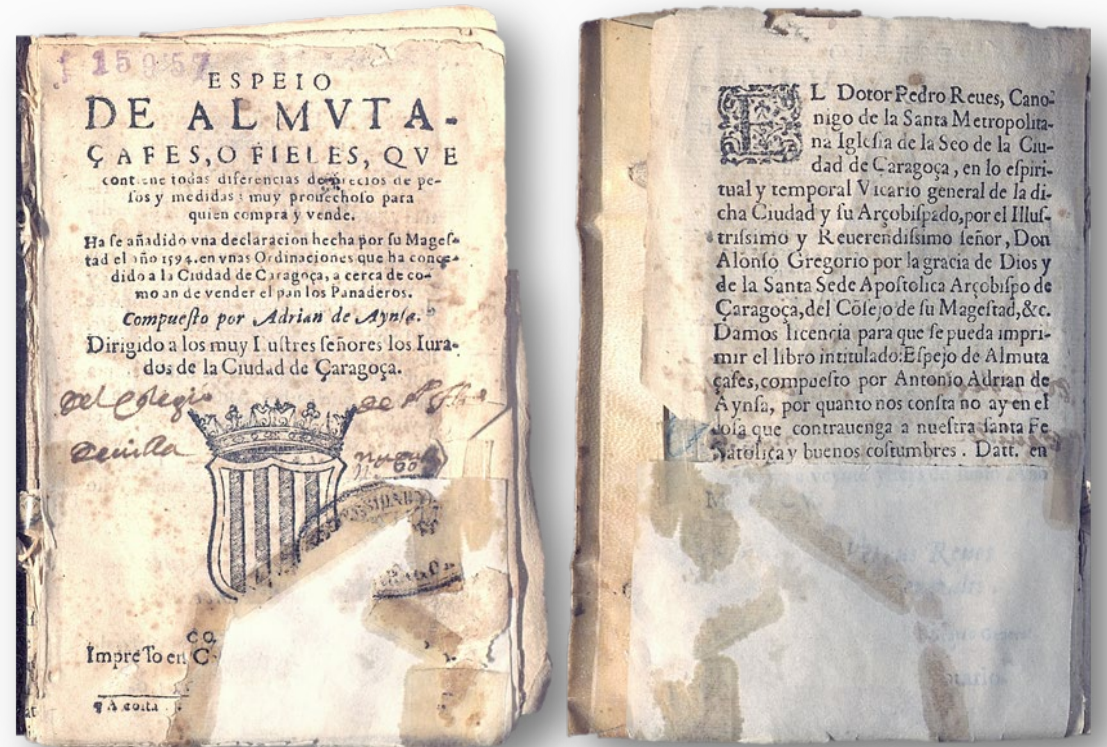 15957
ESPEIO
DE ALMVTA-
ÇAFES, O FIELES, QVE
contiene todas diferencias de precios de pe-
sos y medidas: muy prouechoso para
quien compra y vende.
Ha se añadido vna declaracion hecha por su Mages-
tad el año 1594. en vnas Ordinaciones que ha conce-
dido a la Ciudad de Çaragoça, a cerca de co-
mo an de vender el pan los Panaderos.
Compuesto por Adrian de Aynsa.
Dirigido a los muy Illustres señores los Iura-
dos de la Ciudad de Çaragoça.
del Colegio de
Impresso en
A costa
EL Dotor Pedro Reues, Cano-
nigo de la Santa Metropolita-
na Iglesia de la Seo de la Ciu-
dad de Çaragoça, en lo espiri-
tual y temporal Vicario general de la di-
cha Ciudad y su Arçobispado, por el Illus-
trissimo y Reuerendissimo señor, Don
Alonso Gregorio por la gracia de Dios y
de la Santa Sede Apostolica Arçobispo de
Çaragoça, del Cõsejo de su Magestad, &c.
Damos licencia para que se pueda impri-
mir el libro intitulado: Espejo de Almuta
çafes, compuesto por Antonio Adrian de
Aynsa, por quanto nos consta no ay en el
cosa que contrauenga a nuestra santa Fe
Catolica y buenos costumbres. Datt. en
Reues